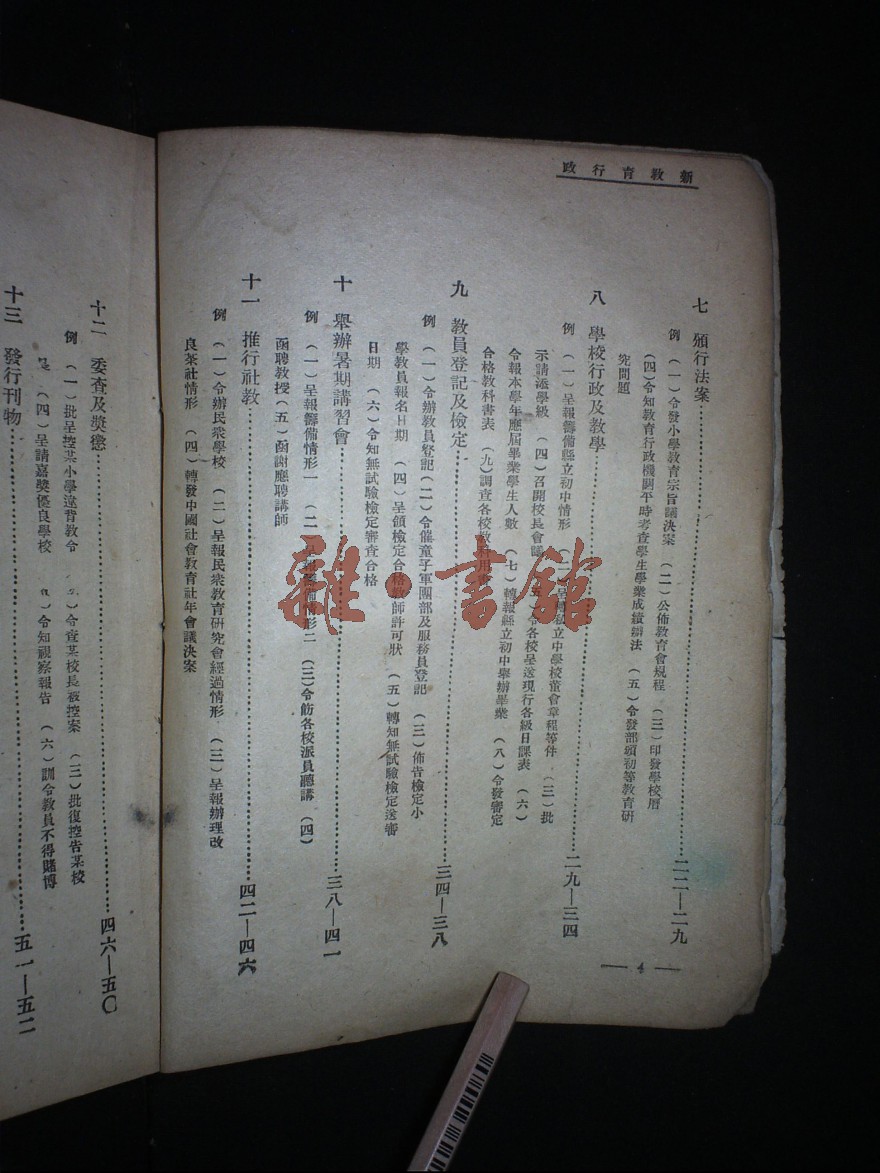 新教育行政
七　頒行法案……二二—二九
例　(一)令發小學教育宗旨議決案　(二)公佈教育會規程　(三)印發學校曆
(四)令知教育行政機關平時考查學生學業成績辦法　(五)令發部頒初等教育研
究問題
八　學校行政及教學……二九—三四
例　(一)呈報籌備縣立初中情形　(二)呈 私立中學校董會章程等件　(三)批
示請添學級　(四)召開校長會議　(五)令各校呈送現行各級日課表　(六)
令報本學年應屆畢業學生人數　(七)轉報縣立初中舉辦畢業　(八)令發審定
合格教科書表　(九)調查各校教科用書
九　教員登記及檢定……三四—三八
例　(一)令辦教員登記(二)令催童子軍團部及服務員登記　(三)佈告檢定小
學教員報名日期　(四)呈領檢定合格教師許可狀　(五)轉知無試驗檢定送審
日期　(六)令知無試驗檢定審查合格
十　舉辦暑期講習會……三八—四一
例　(一)呈報籌備情形一　(二)呈報籌備情形二　(三)令飭各校派員聽講　(四)
函聘教授(五)函謝應聘講師
十一　推行社教……四二—四六
例　(一)令辦民衆學校　(二)呈報民衆教育研究會經過情形　(三)呈報辦理改
良茶社情形　(四)轉發中國社會教育社年會議決案
—4—
十二　委查及獎懲……四六—五〇
例　(一)批呈控某小學違背教令　令查某校長被控案　(三)批復控告某校
(四)呈請嘉獎優良學校　令知視察報告　(六)訓令教員不得賭博
十三　發行刊物……五一—五二
雜·書館